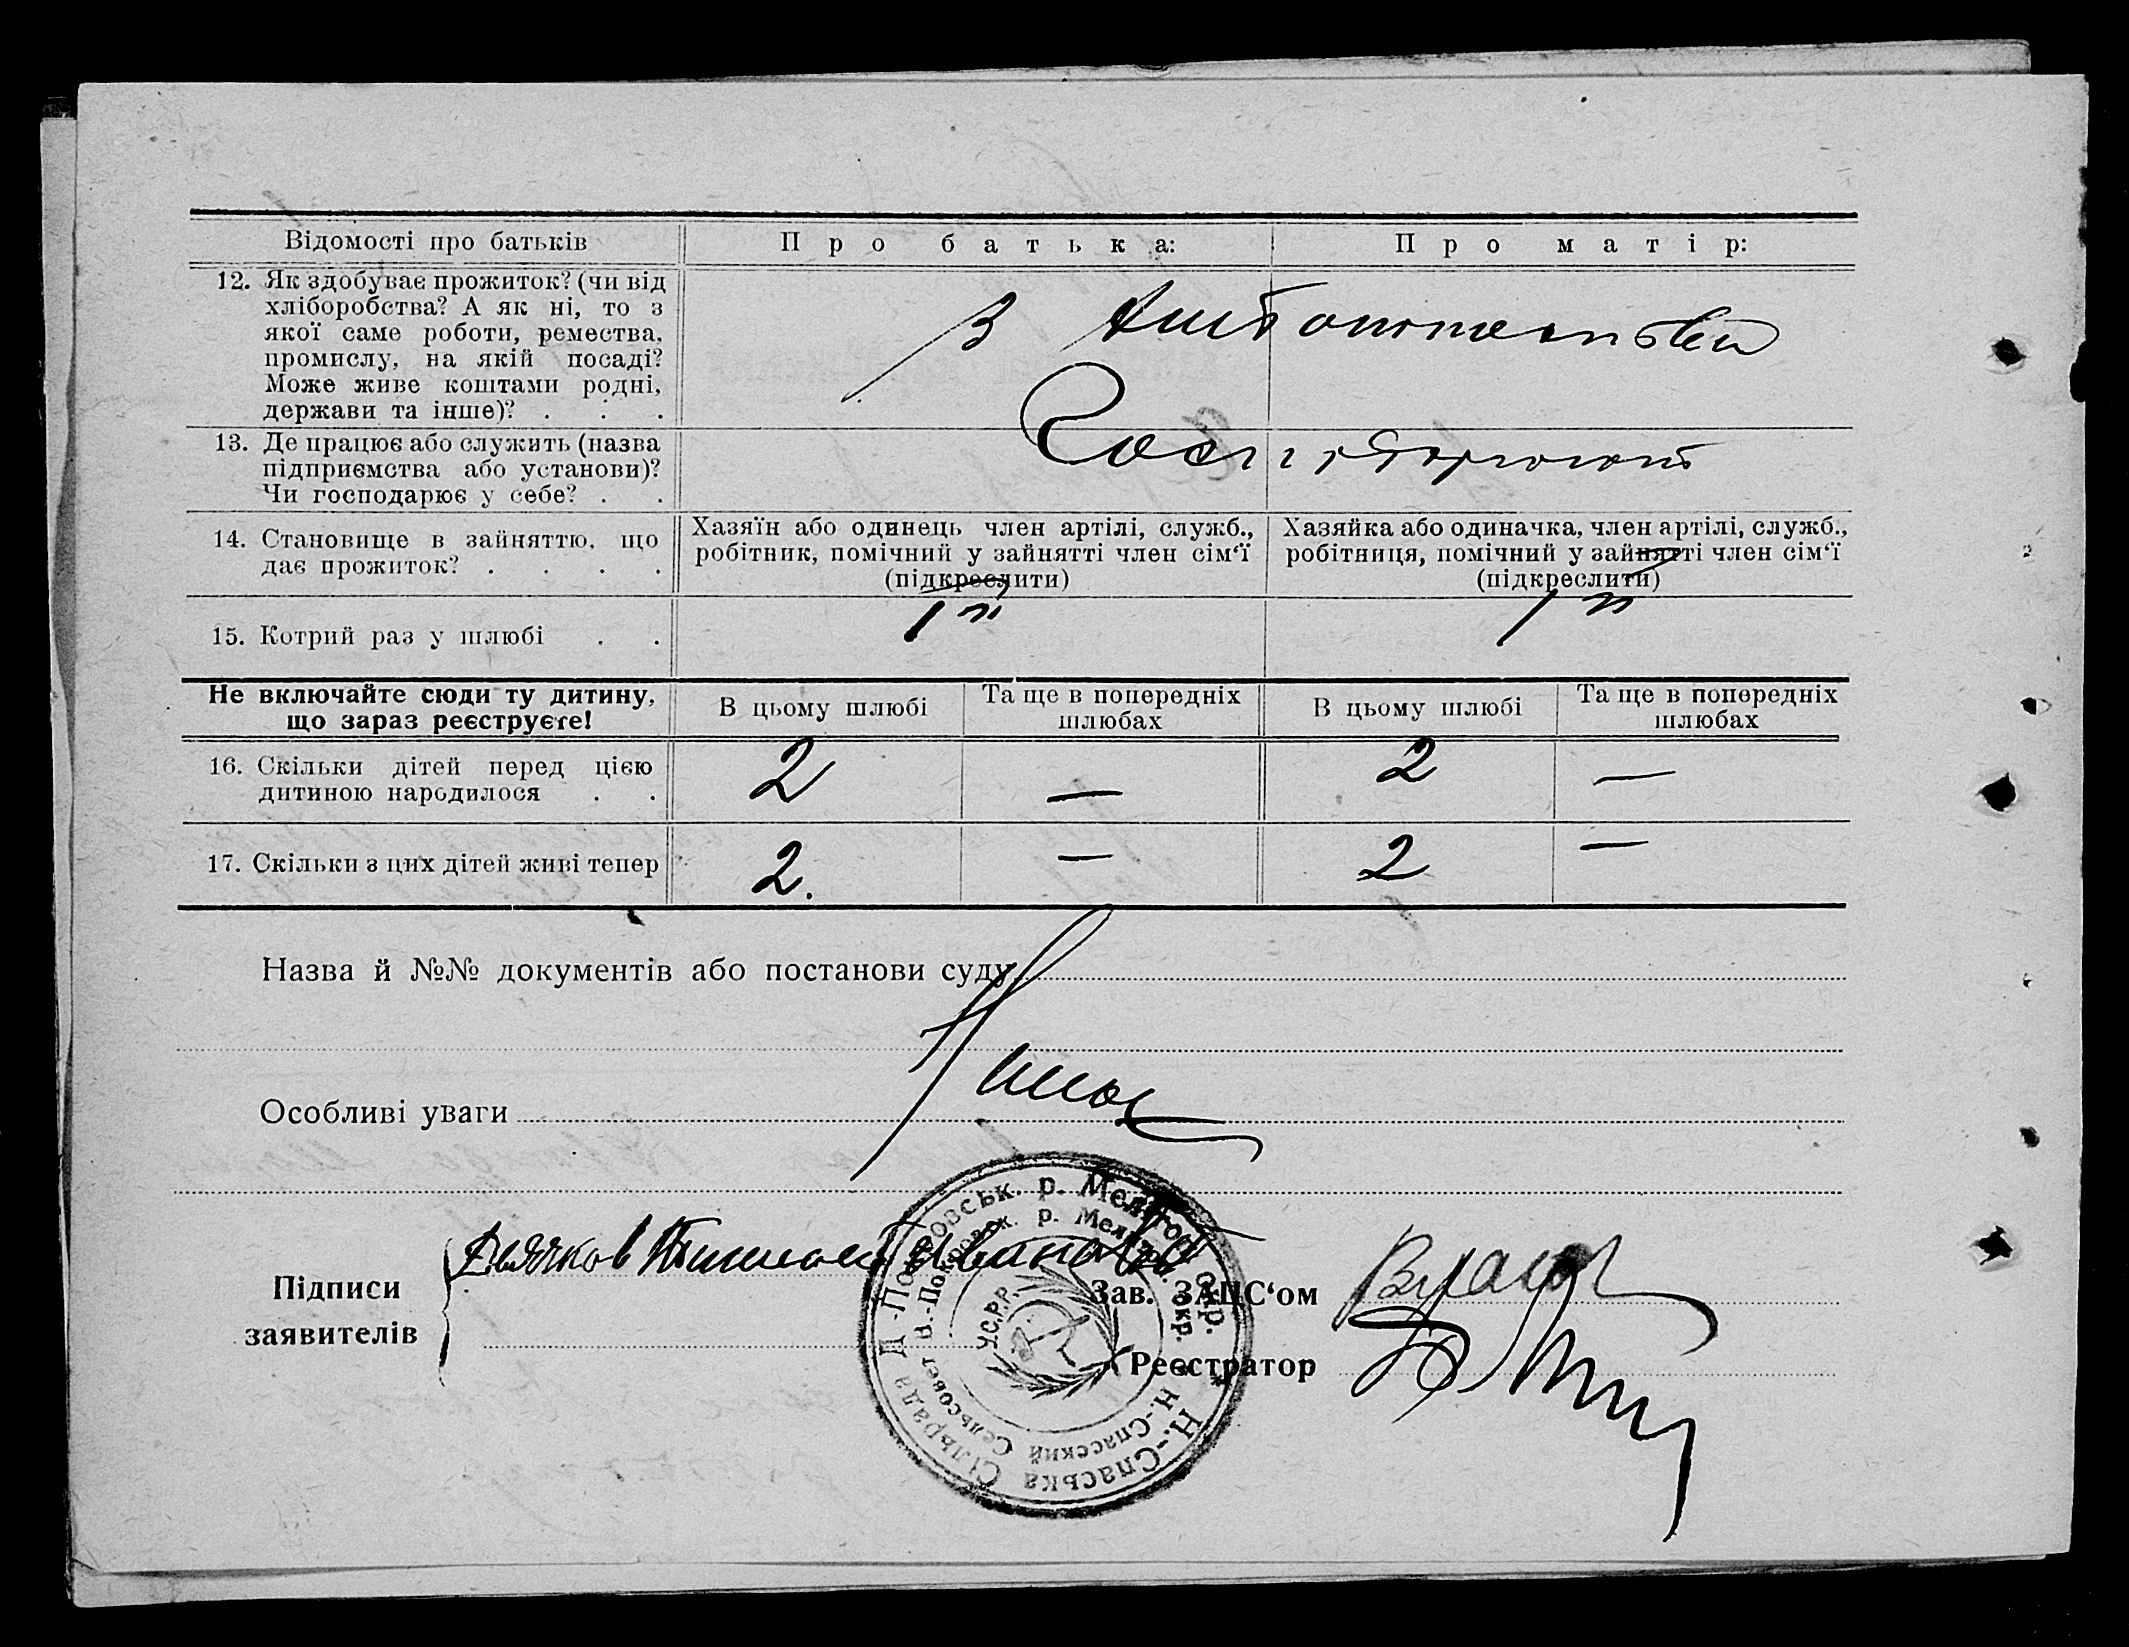 Відомості про батьків
Про батька:
Про матір:
12. Як здобуває прожиток? (чи від
хліборобства? А як ні, то з
якої саме роботи, ремества,
промислу, на якій посаді?
Може живе коштами родні,
держави та інше)? . . .
З
13. Де працює або служить (назва
підприємства або установи)?
Чи господарює у себе? . .
14. Становище в зайняттю, що
дає прожиток? . . . .
Хазяїн або одинець член артілі, служб.,
робітник, помічний у зайнятті член сім‘ї
(підкреслити)
Хазяйка або одиначка, член артілі, служб.,
робітниця, помічний у зайнятті член сім‘ї
(підкреслити)
15. Котрий раз у шлюбі . .
1й
1й
Не включайте сюди ту дитину,
що зараз реєструєте!
В цьому шлюбі
Та ще в попередніх
шлюбах
В цьому шлюбі
Та ще в попередніх
шлюбах
16. Скільки дітей перед цією
дитиною народилося . .
2 — 2 —
17. Скільки з цих дітей живі тепер
2. — 2 —
Назва й №№ документів або постанови суду
Особливі уваги
Підписи
заявителів
Зав. ЗАГС‘ом
Реєстратор
Н.-Спаська Сільрада -Покровськ. р. Меліт окр.
Н.-Спасский Сельсовет В.-Покровск. р. Мелит. окр.
У.С.Р.Р.